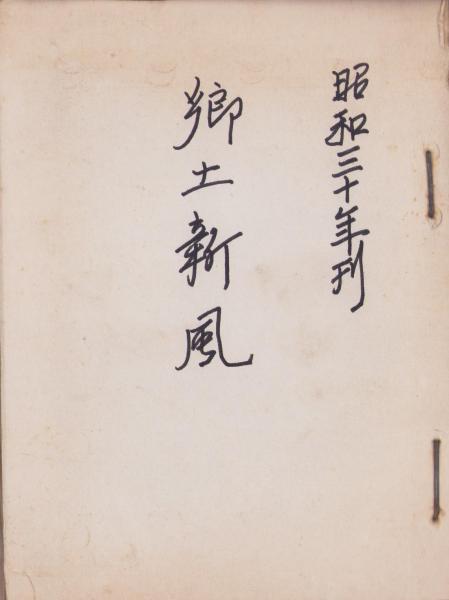 昭和三十年刊
郷土新風